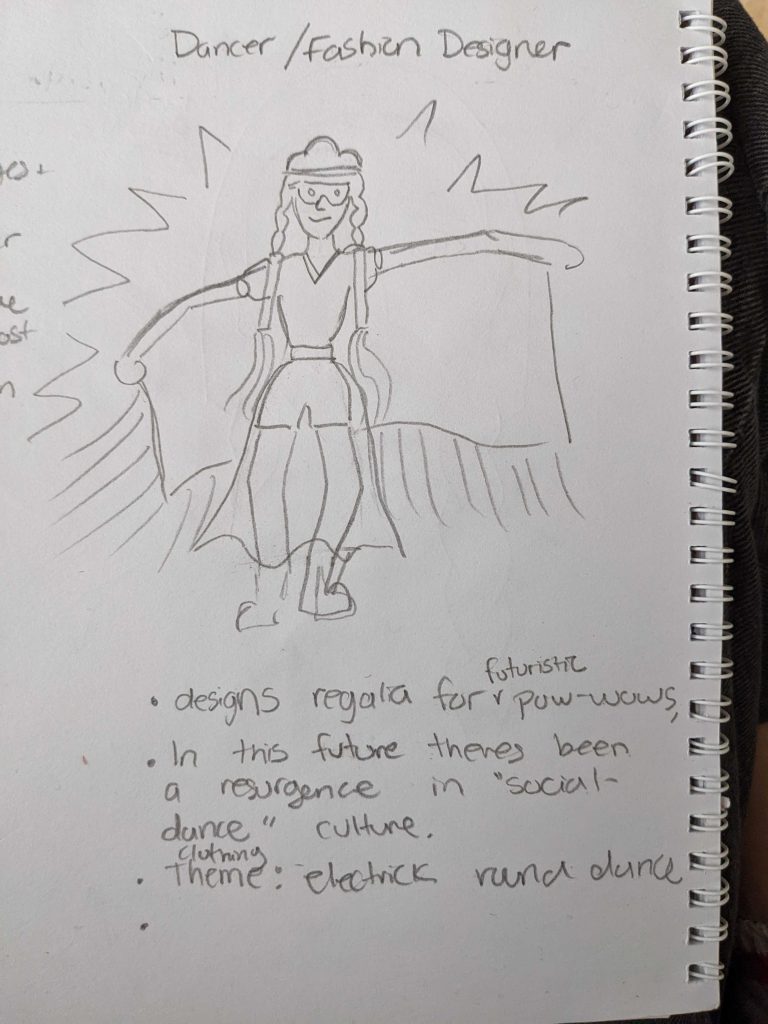 Dancer /Fashion Designer
futuristic
• designs regalia for ˅ pow-wows,
• In this future theres been
a resurgence in "social-
dance" culture.
clothing
• Theme: electrick round dance
•